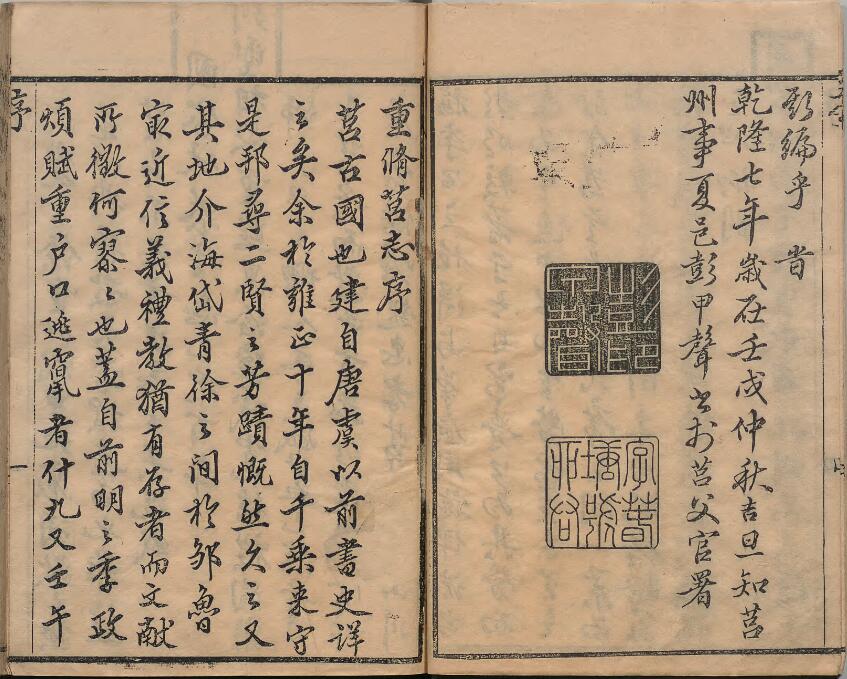 斯編乎旹
乾隆七年歲在壬戌仲秋吉旦知莒
州事夏邑彭甲聲書於莒父官署
重脩莒志序
莒古國也建自唐虞以前書史詳
之矣余於雍正十年自千乗来守
是邦尋二賢之芳蹟慨然久之又
其地介海岱青徐之間於鄒魯
冣近信義禮教猶有存者而文献
所徵何寥〻也蓋自前明之季政
煩賦重户口逃竄者什九又壬午
序
一